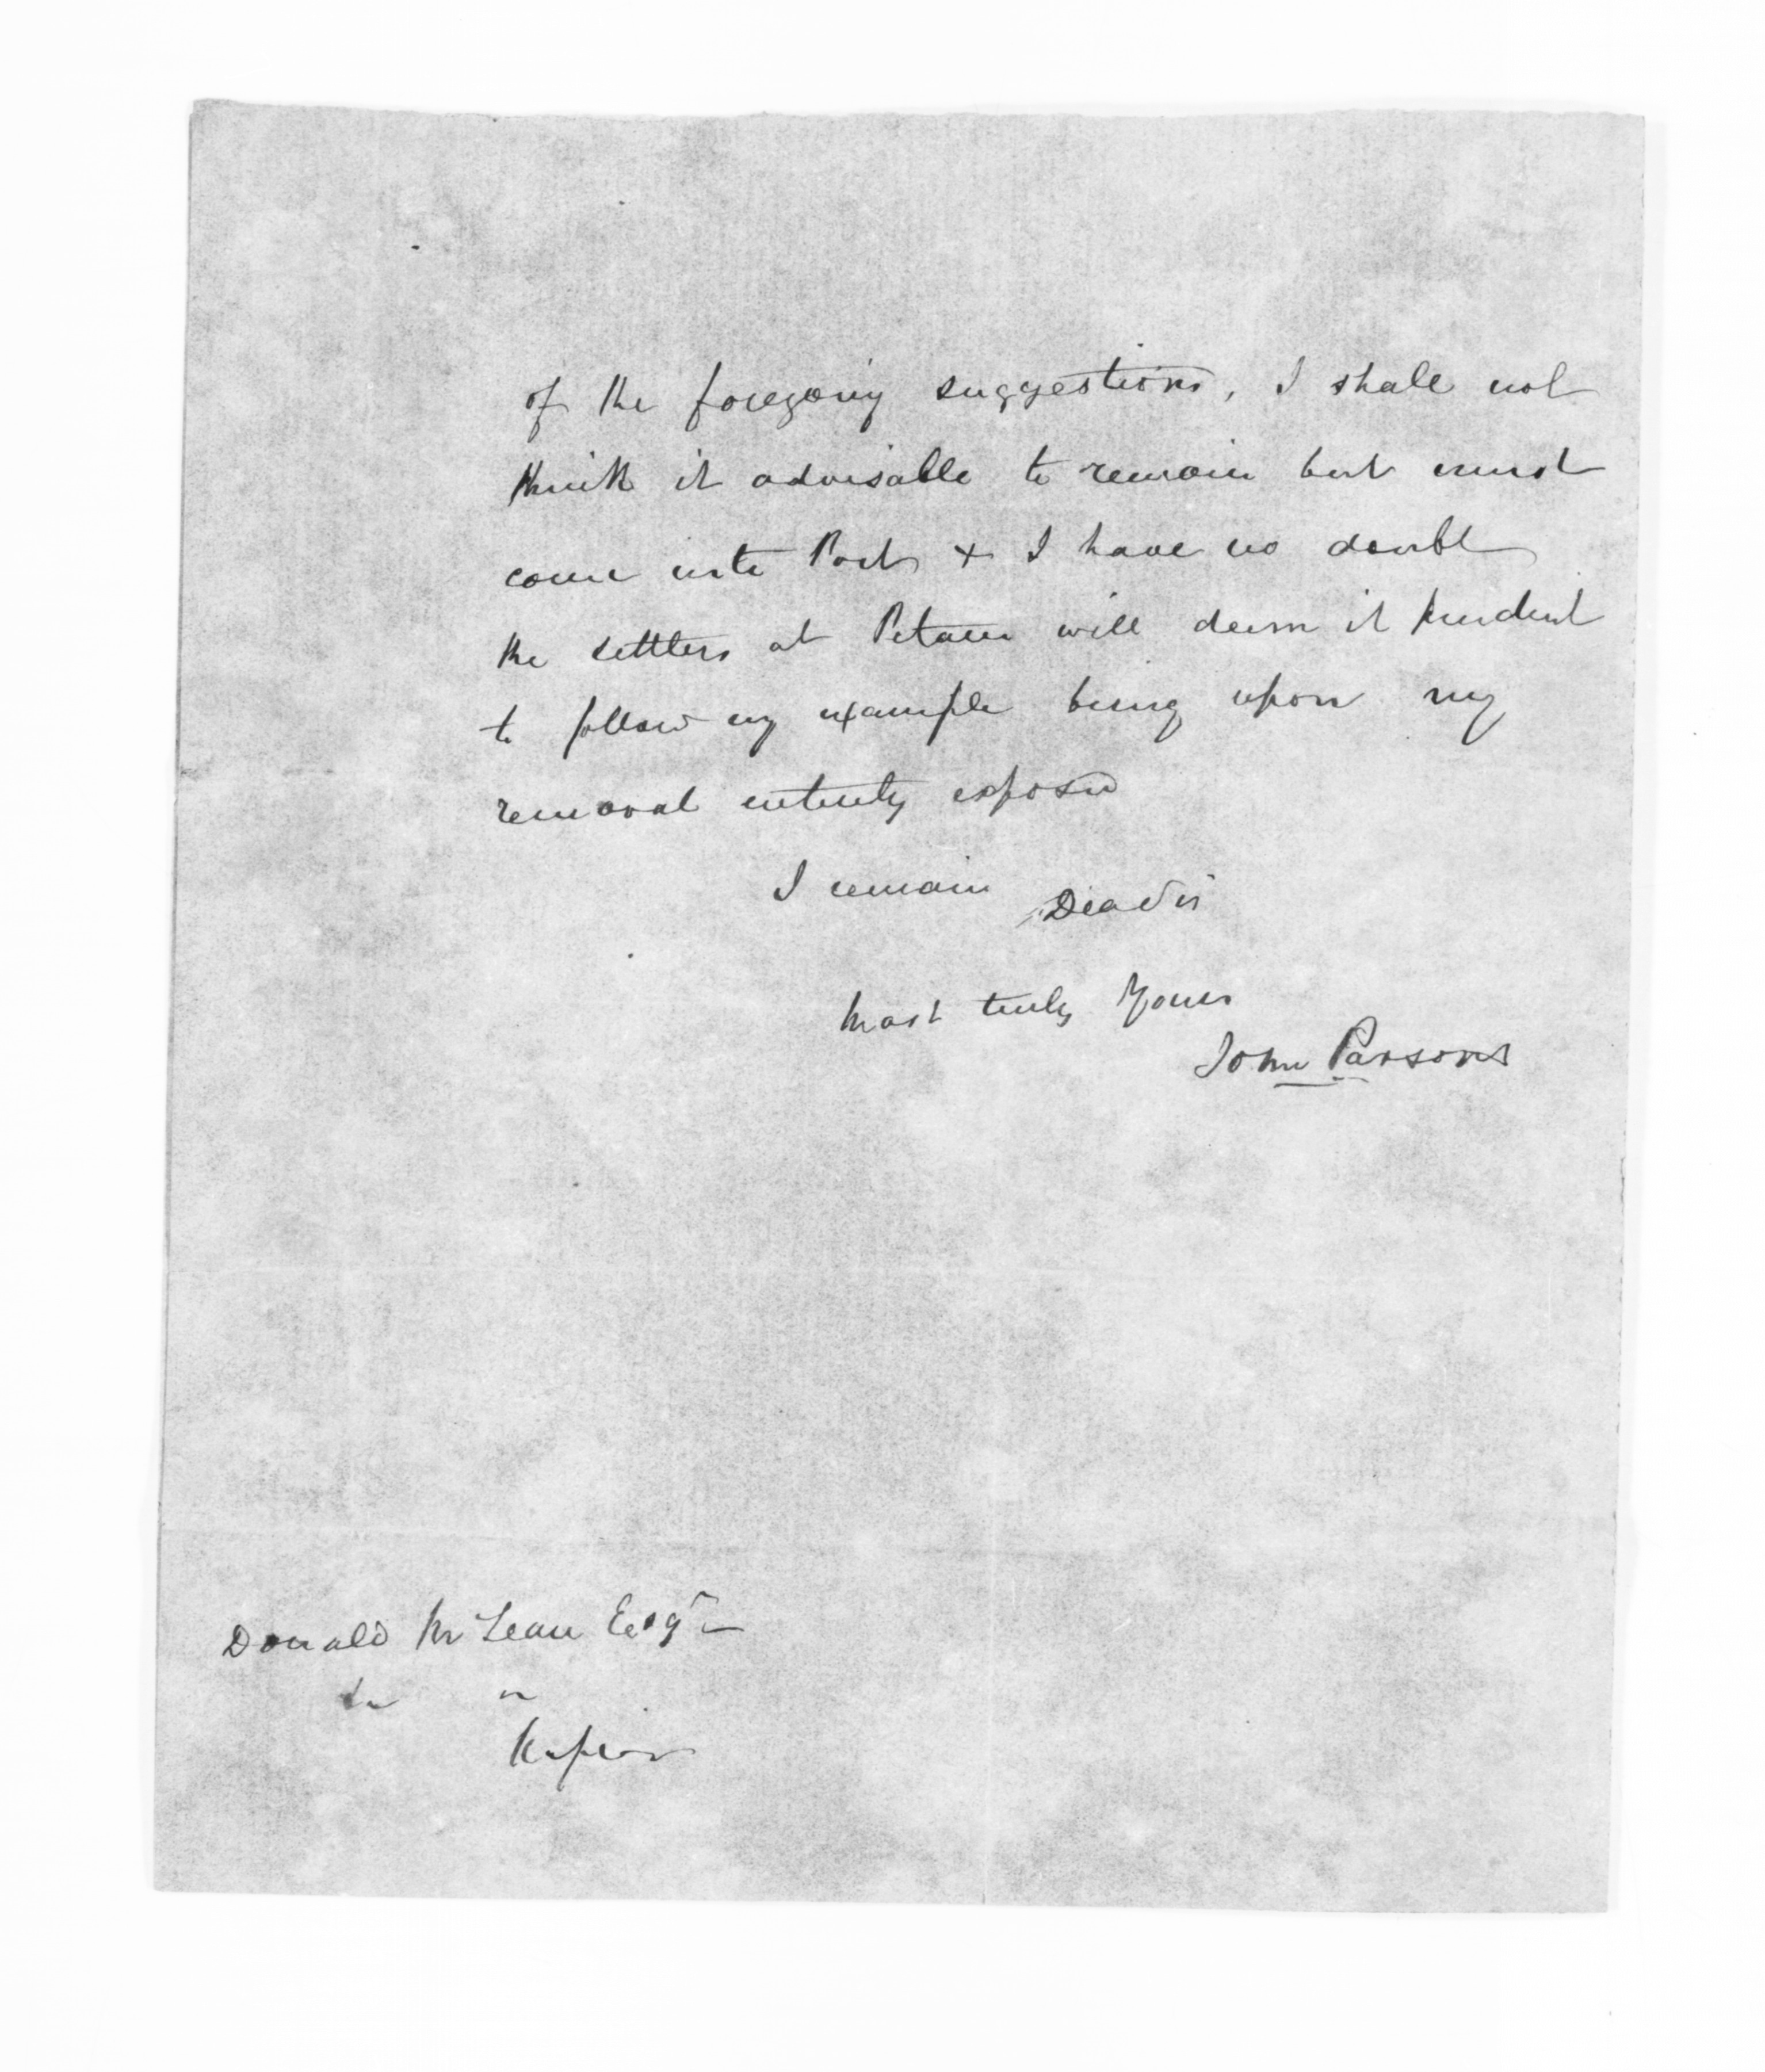 of the foregoing suggestions, I shall not
think it advisable to remain but must
come into Port & I have no doubt
the settlers at Petane will deem it prudent
to follow my example being upon my
removal entirely exposed
I remain Dear Sir
Most truly Yours
John Parsons
Donald McLean Esqr
Napier